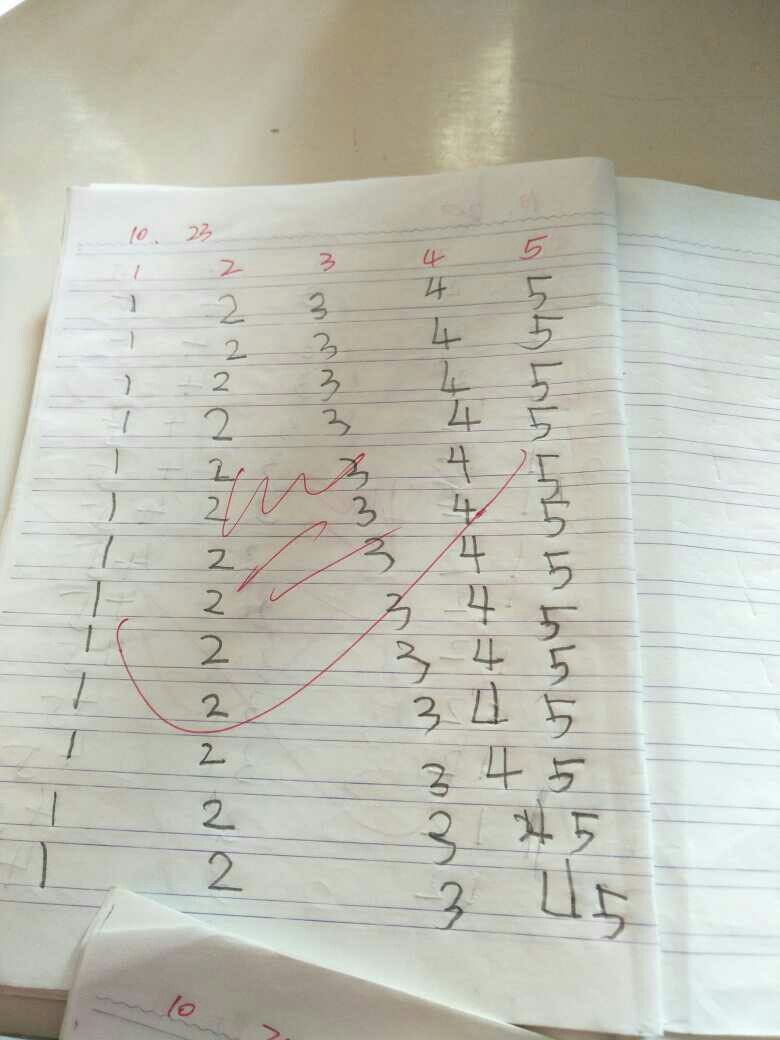 10. 23
1 2 3 4 5
1 2 3 4 5
1 2 3 4 5
1 2 3 4 5
1 2 3 4 5
1 2 3 4 5
1 2 3 4 5
1 2 3 4 5
1 2 3 4 5
1 2 3 4 5
1 2 3 4 5
1 2 3 4 5
1 2 3 4 5
1 2 3 4 5
10